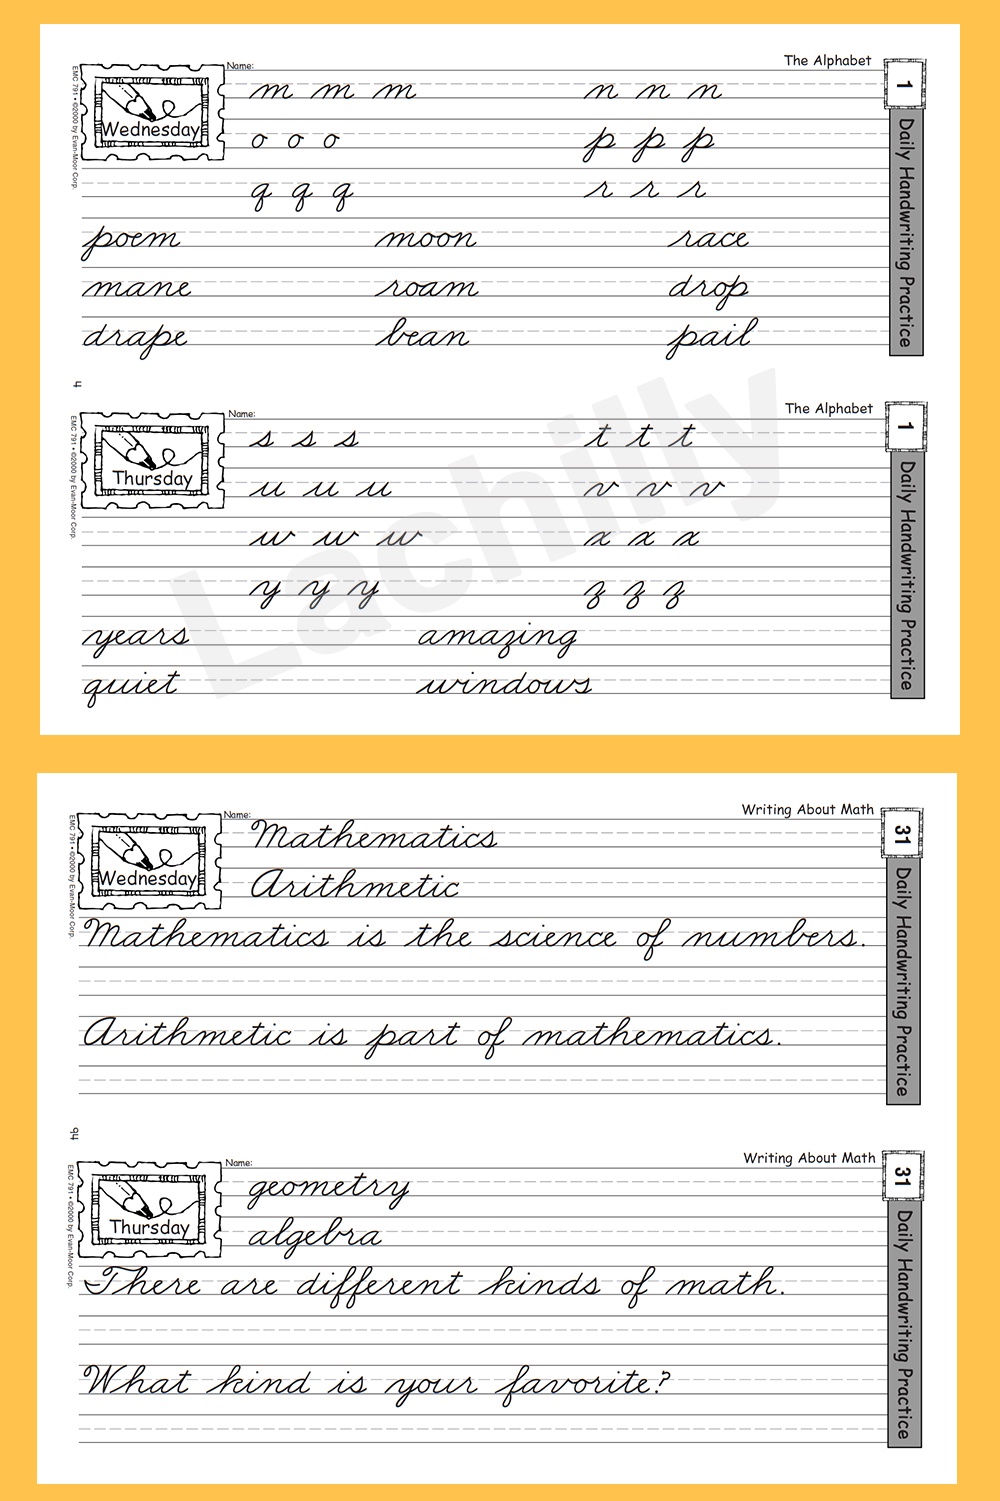 Name: The Alphabet 1
m m m n n n
Wednesday o o o p p p
q q q r r r
poem moon race
mane roam drop
drape bean pail
EMC 791 • ©2000 by Evan-Moor Corp.
Daily Handwriting Practice
4
Name: The Alphabet 1
s s s t t t
Thursday u u u v v v
w w w x x x
y y y z z z
years amazing
quiet windows
EMC 791 • ©2000 by Evan-Moor Corp.
Daily Handwriting Practice
Lachilly
Name: Writing About Math 31
Mathematics
Wednesday Arithmetic
Mathematics is the science of numbers.
Arithmetic is part of mathematics.
EMC 791 • ©2000 by Evan-Moor Corp.
Daily Handwriting Practice
94
Name: Writing About Math 31
geometry
Thursday algebra
There are different kinds of math.
What kind is your favorite?
EMC 791 • ©2000 by Evan-Moor Corp.
Daily Handwriting Practice